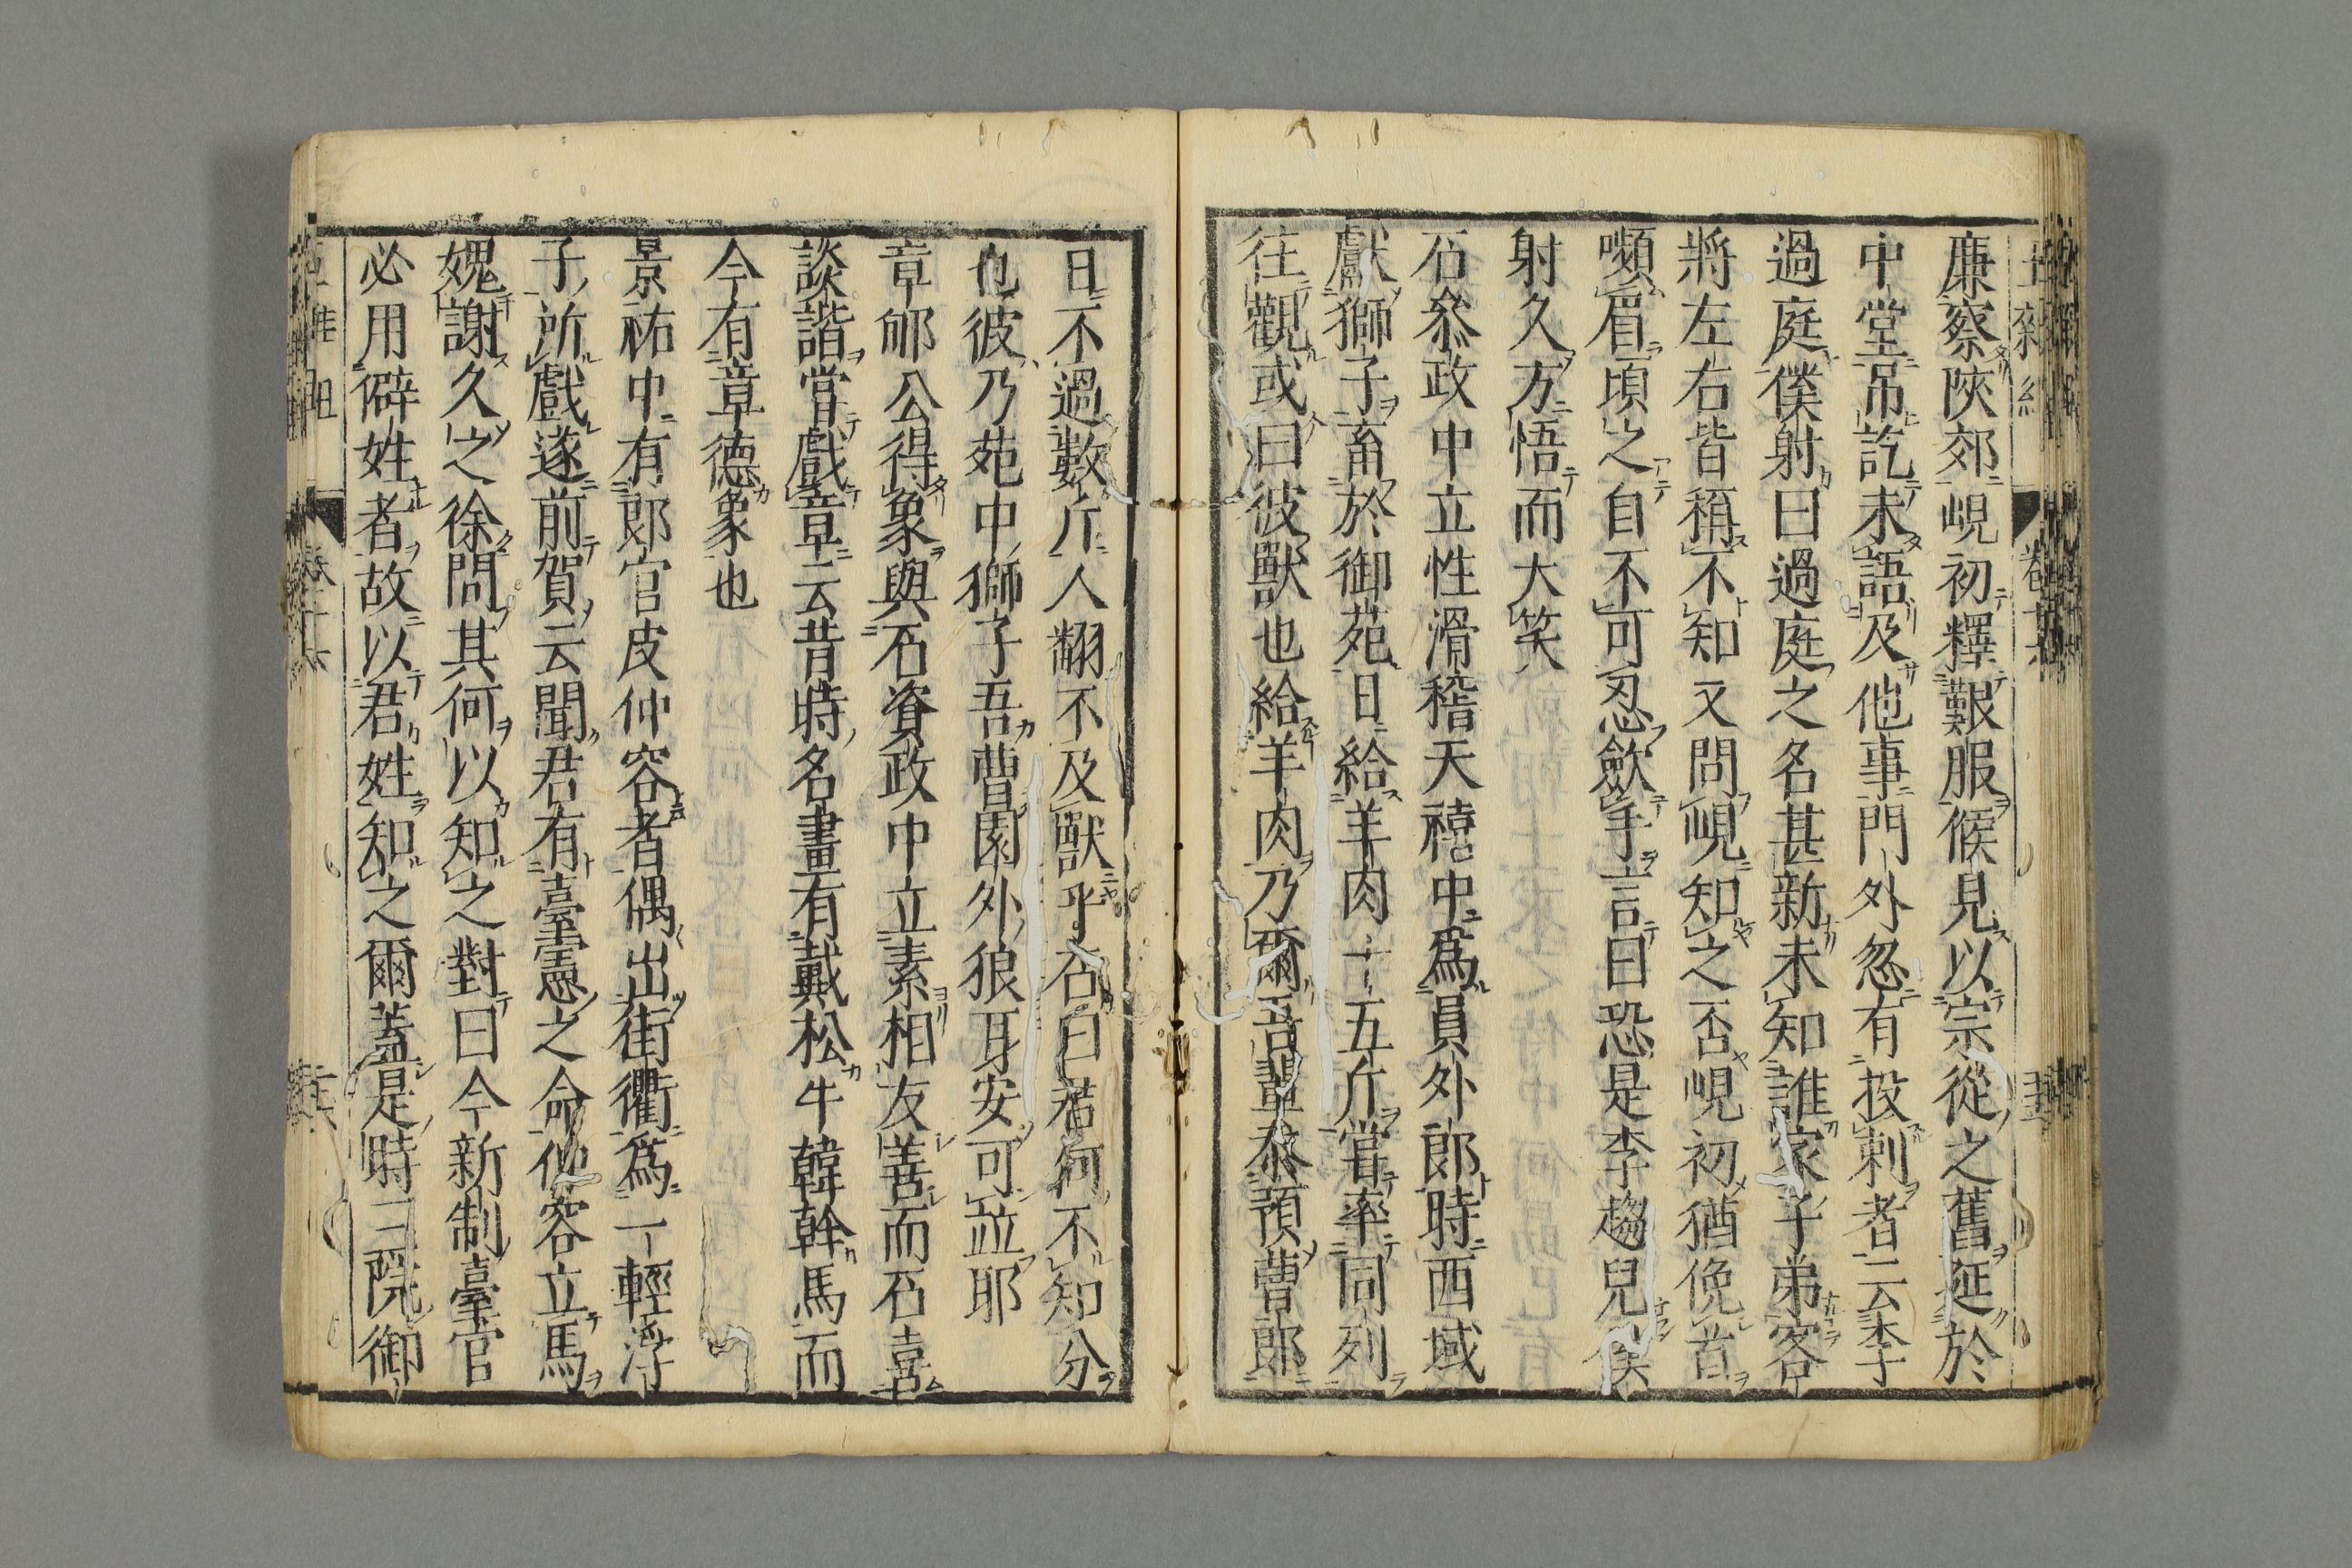 廉察陜郊峴初釋艱服候見以宗從之舊延於
中堂吊訖未語及他事門外忽有投刺者云李
過庭僕射曰過庭之名甚新未知誰家子弟客
將左右皆稱不知又問峴知之否峴初猶俛首
嚬眉頃之自不可忍歛手言曰恐是李趨兒僕
射久方悟而大笑
石叅政中立性滑稽天禧中爲員外郎時西域
獻獅子畜於御苑日給羊肉十五斤嘗率同列
往觀或曰彼獸也給羊肉乃爾吾輩忝預曹郎
日不過數斤人翻不及獸乎石曰若何不知分
也彼乃苑中獅子吾曹園外狼耳安可竝耶
章郇公得象與石資政中立素相友善而石喜
談諧嘗戲章云昔時名畫有戴松牛韓幹馬而
今有章德象也
景祐中有郎官皮仲容者偶出街衢爲一輕浮
子所戲遂前賀云聞君有臺憲之命他容立馬
媿謝久之徐問其何以知之對曰今新制臺官
必用僻姓者故以君姓知之爾蓋是時三院御